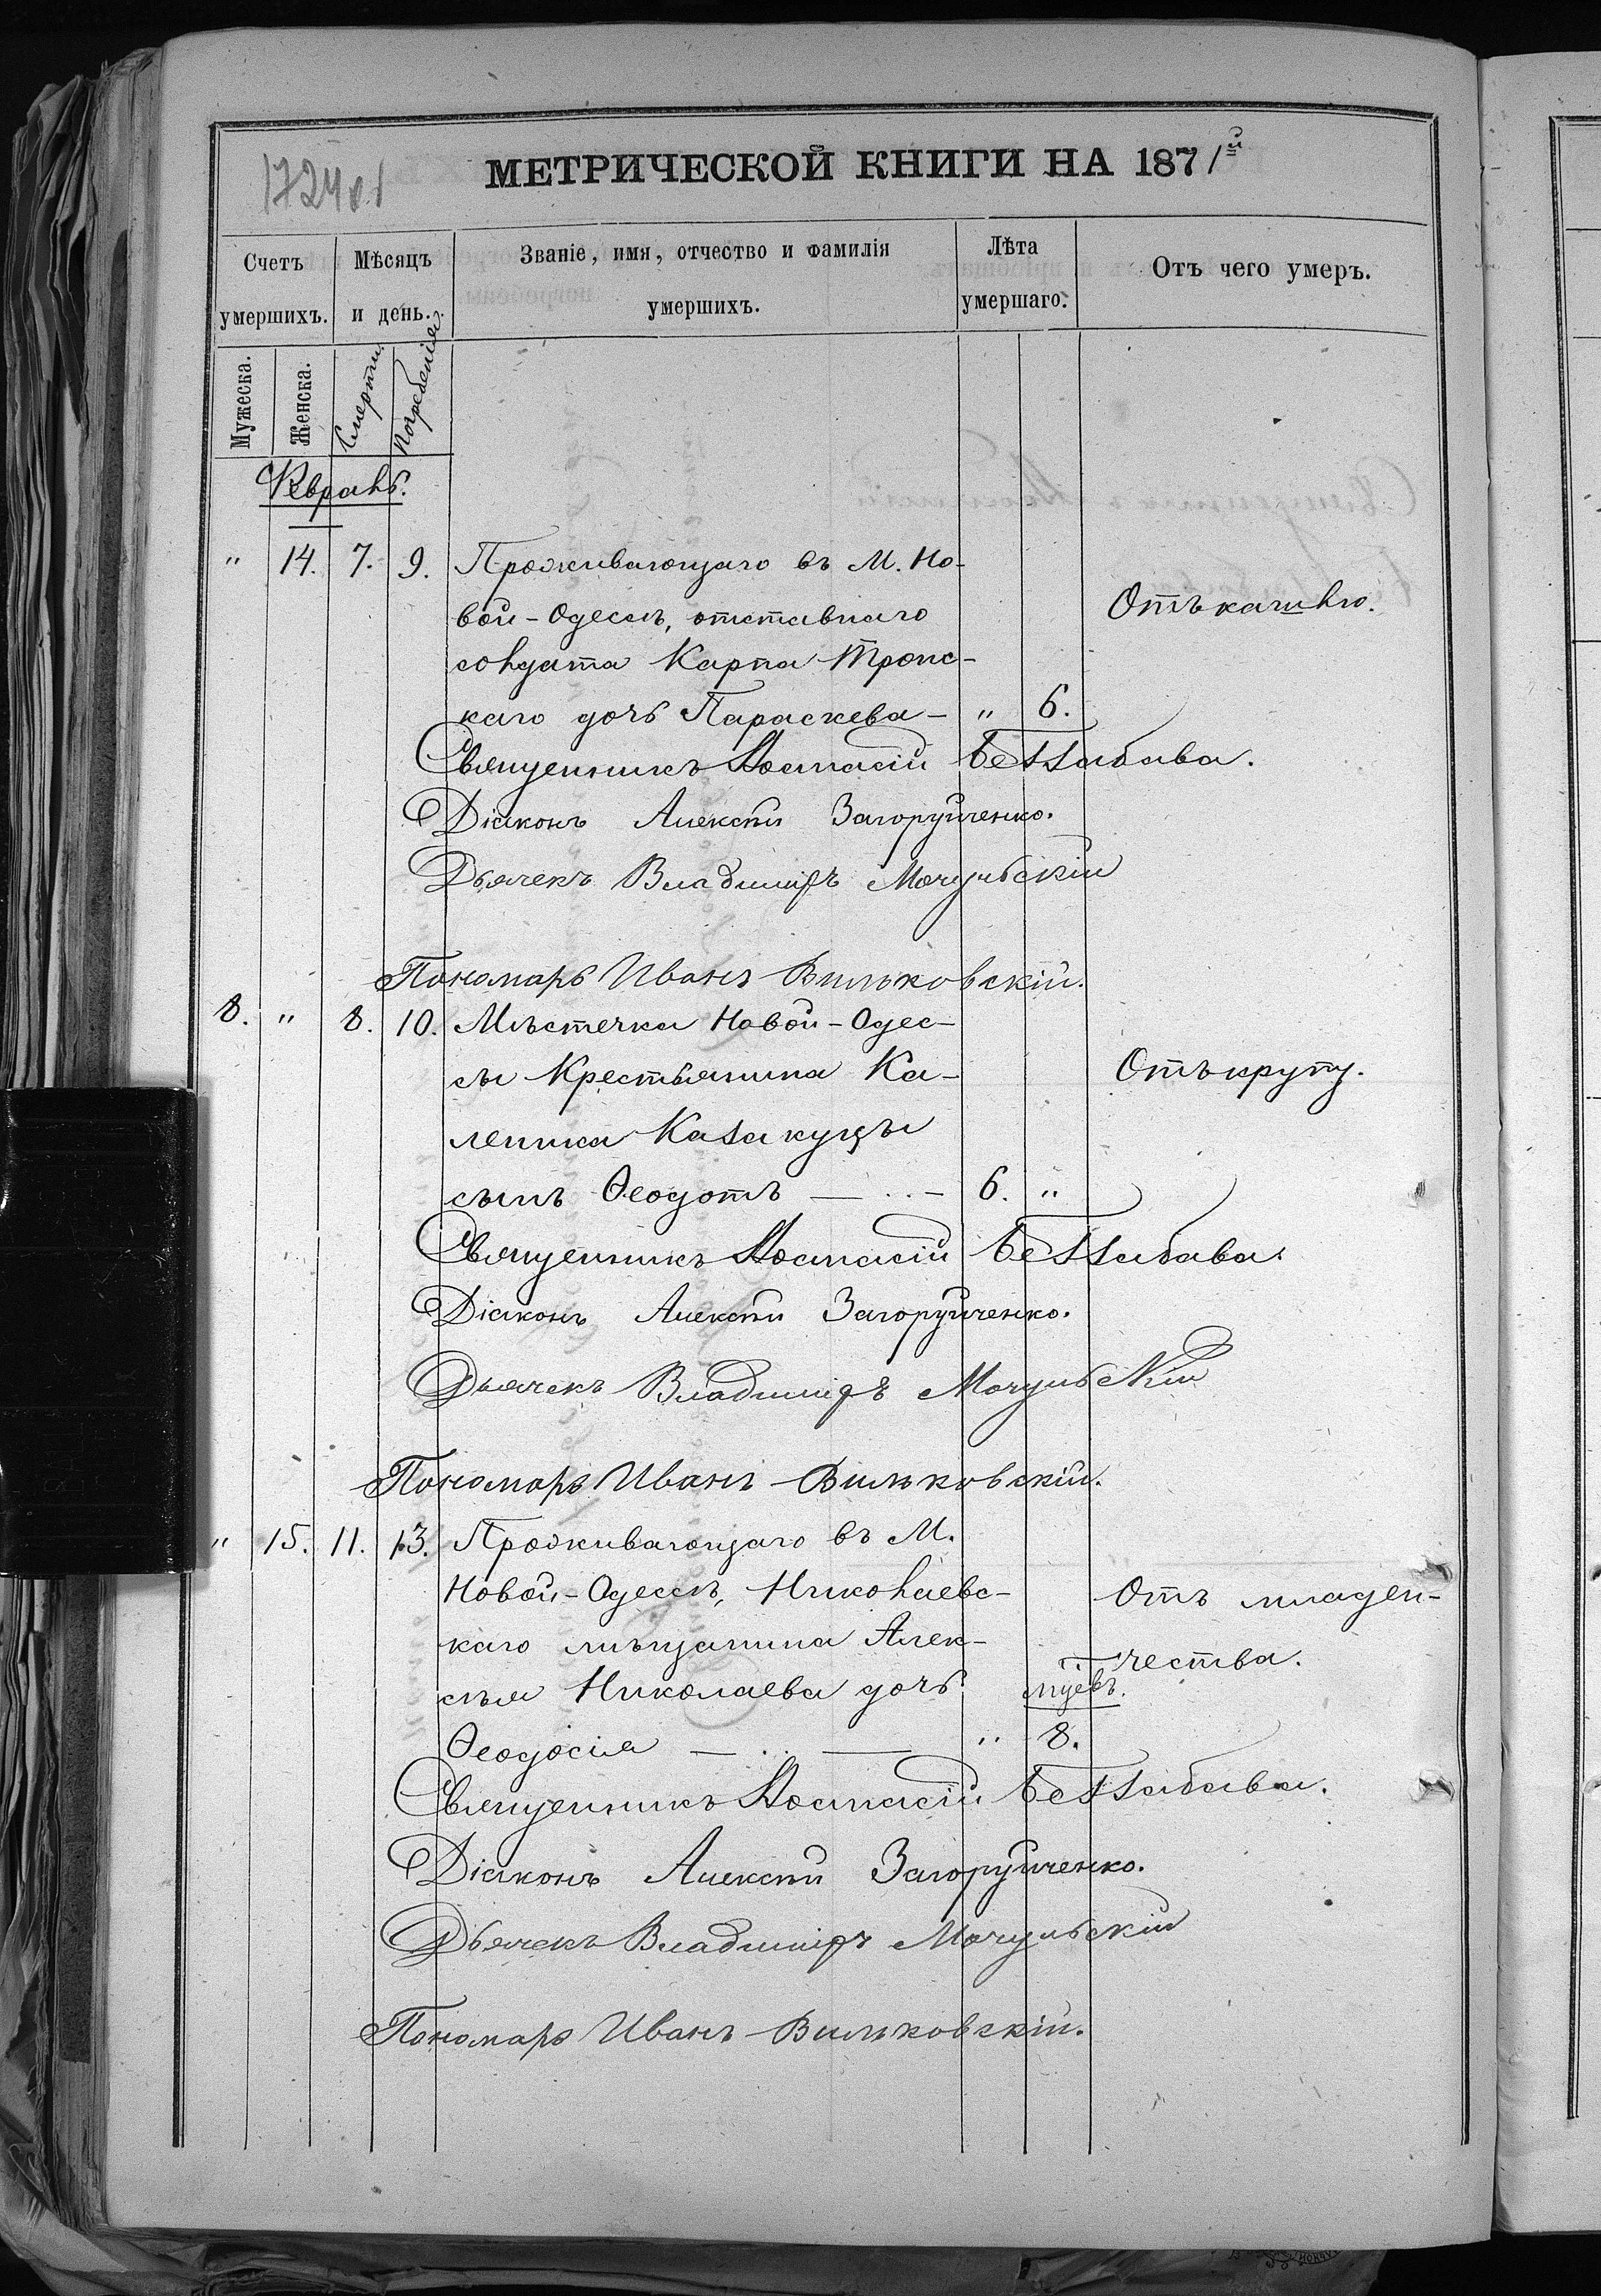 1724об
МЕТРИЧЕСКОЙ КНИГИ НА 1871й
Счетъ умершихъ.
Мѣсяцъ и день.
Званіе, имя, отчество и фамилія умершихъ.
Лѣта умершаго.
Отъ чего умеръ.
Мужеска.
Женска.
Смерти.
Погребенія.
Февраль.
" 14. 7. 9. Проживающаго въ М. Но-
вой-Одессѣ, отставнаго
Отъ кашлю.
солдата Карпа Тропс-
каго дочь Параскева — " 6.
Священникъ Аѳанасій Беззабава.
Діаконъ Алексѣй Загоруйченко.
Дьячекъ Владиміръ Мочульскій
Пономарь Иванъ Вильковскій.
8. " 8. 10. Мѣстечка Новой-Одес-
сы Крестьянина Ка-
Отъ крупу.
леника Казакуцы
сынъ Ѳеодотъ — 6. "
Священникъ Аѳанасій Беззабава.
Діаконъ Алексѣй Загоруйченко.
Дьячекъ Владиміръ Мочульскій
Пономарь Иванъ Вильковскій.
" 15. 11. 13. Проживающаго въ М.
Новой-Одессѣ, Николаевс-
Отъ младен-
каго мѣщанина Алек-
чества.
сѣя Николаева дочь
мцевъ.
Ѳеодосія — " 8.
Священникъ Аѳанасій Беззабава.
Діаконъ Алексѣй Загоруйченко.
Дьячекъ Владиміръ Мочульскій
Пономарь Иванъ Вильковскій.